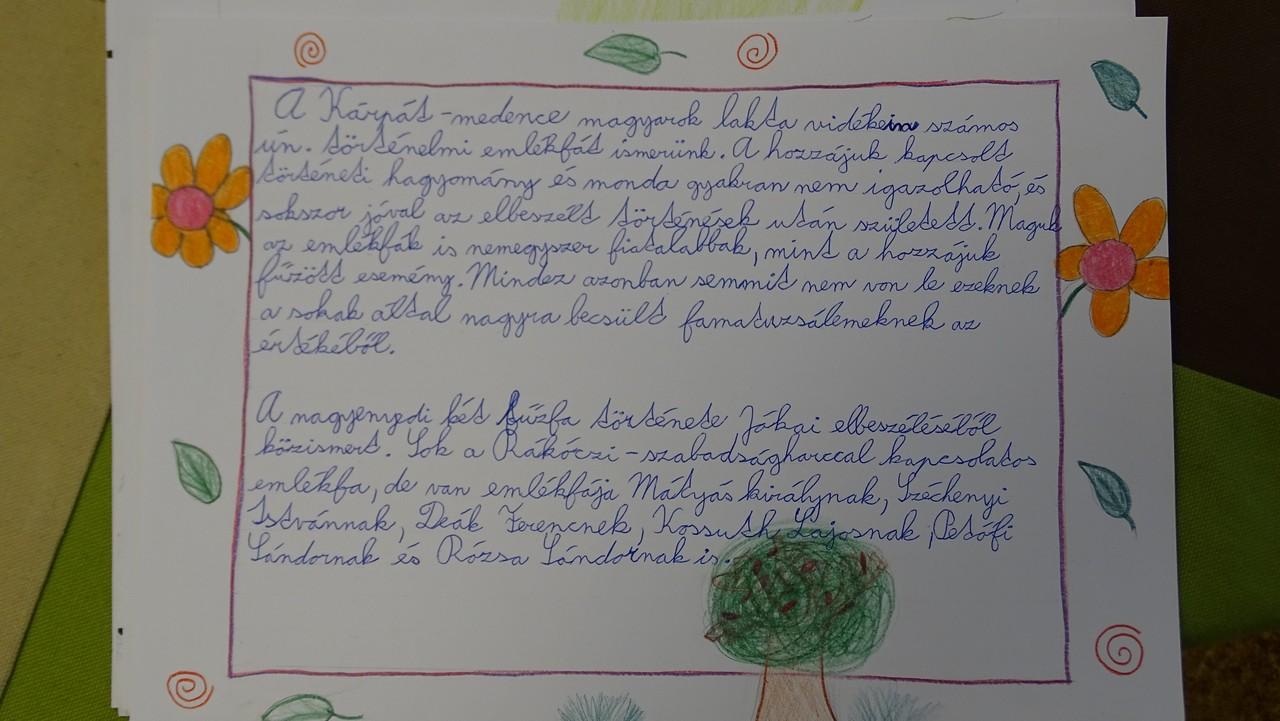 A Kárpát-medence magyarok lakta vidékein számos
ún. történelmi emlékfát ismerünk. A hozzájuk kapcsolt
történeti hagyomány és monda gyakran nem igazolható, és
sokszor jóval az elbeszélt történések után született. Maguk
az emlékfák is nemegyszer fiatalabbak, mint a hozzájuk
fűzött esemény. Mindez azonban semmit nem von le ezeknek
a sokak által nagyra becsült famatuzsálemeknek az
értékéből.
A nagyenyedi két fűzfa története Jókai elbeszéléséből
közismert. Sok a Rákóczi-szabadságharccal kapcsolatos
emlékfa, de van emlékfája Mátyás királynak, Széchenyi
Istvánnak, Deák Ferencnek, Kossuth Lajosnak, Petőfi
Sándornak és Rózsa Sándornak is.